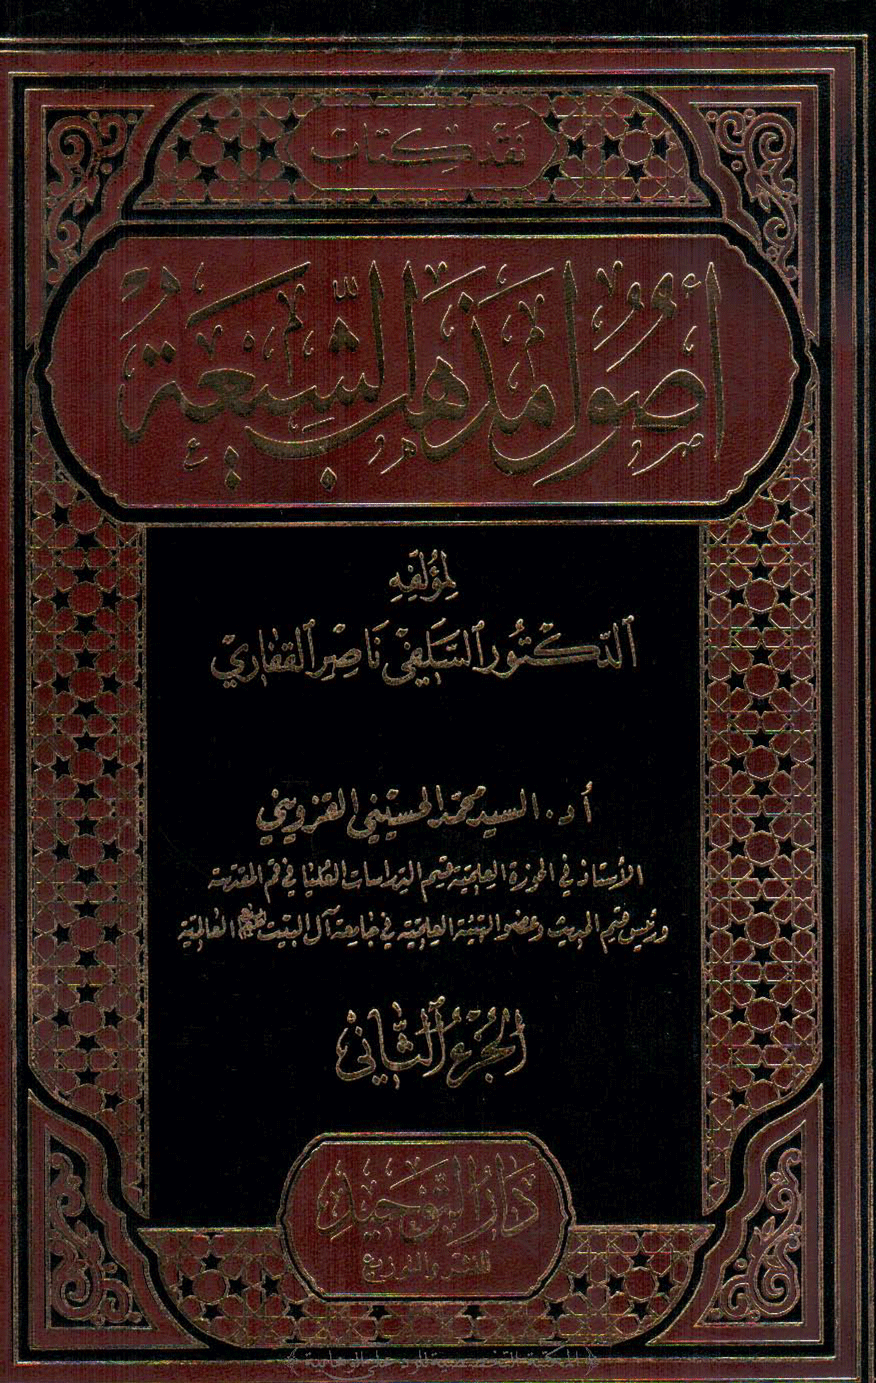 نقد كتاب
أصول مذهب الشيعة
لمؤلفه
الدكتور السلفي ناصر القفاري
أ. د. السيد محمد الحسيني القزويني
الأستاذ في الحوزة العلمية قسم الدراسات العليا في قم المقدسة
ورئيس قسم الحديث وعضو الهيئة العلمية في جامعة آل البيت العالمية
الجزء الثاني
دار التوحيد
للنشر والتوزيع
المكتبة التخصصية للرد على الوهابية